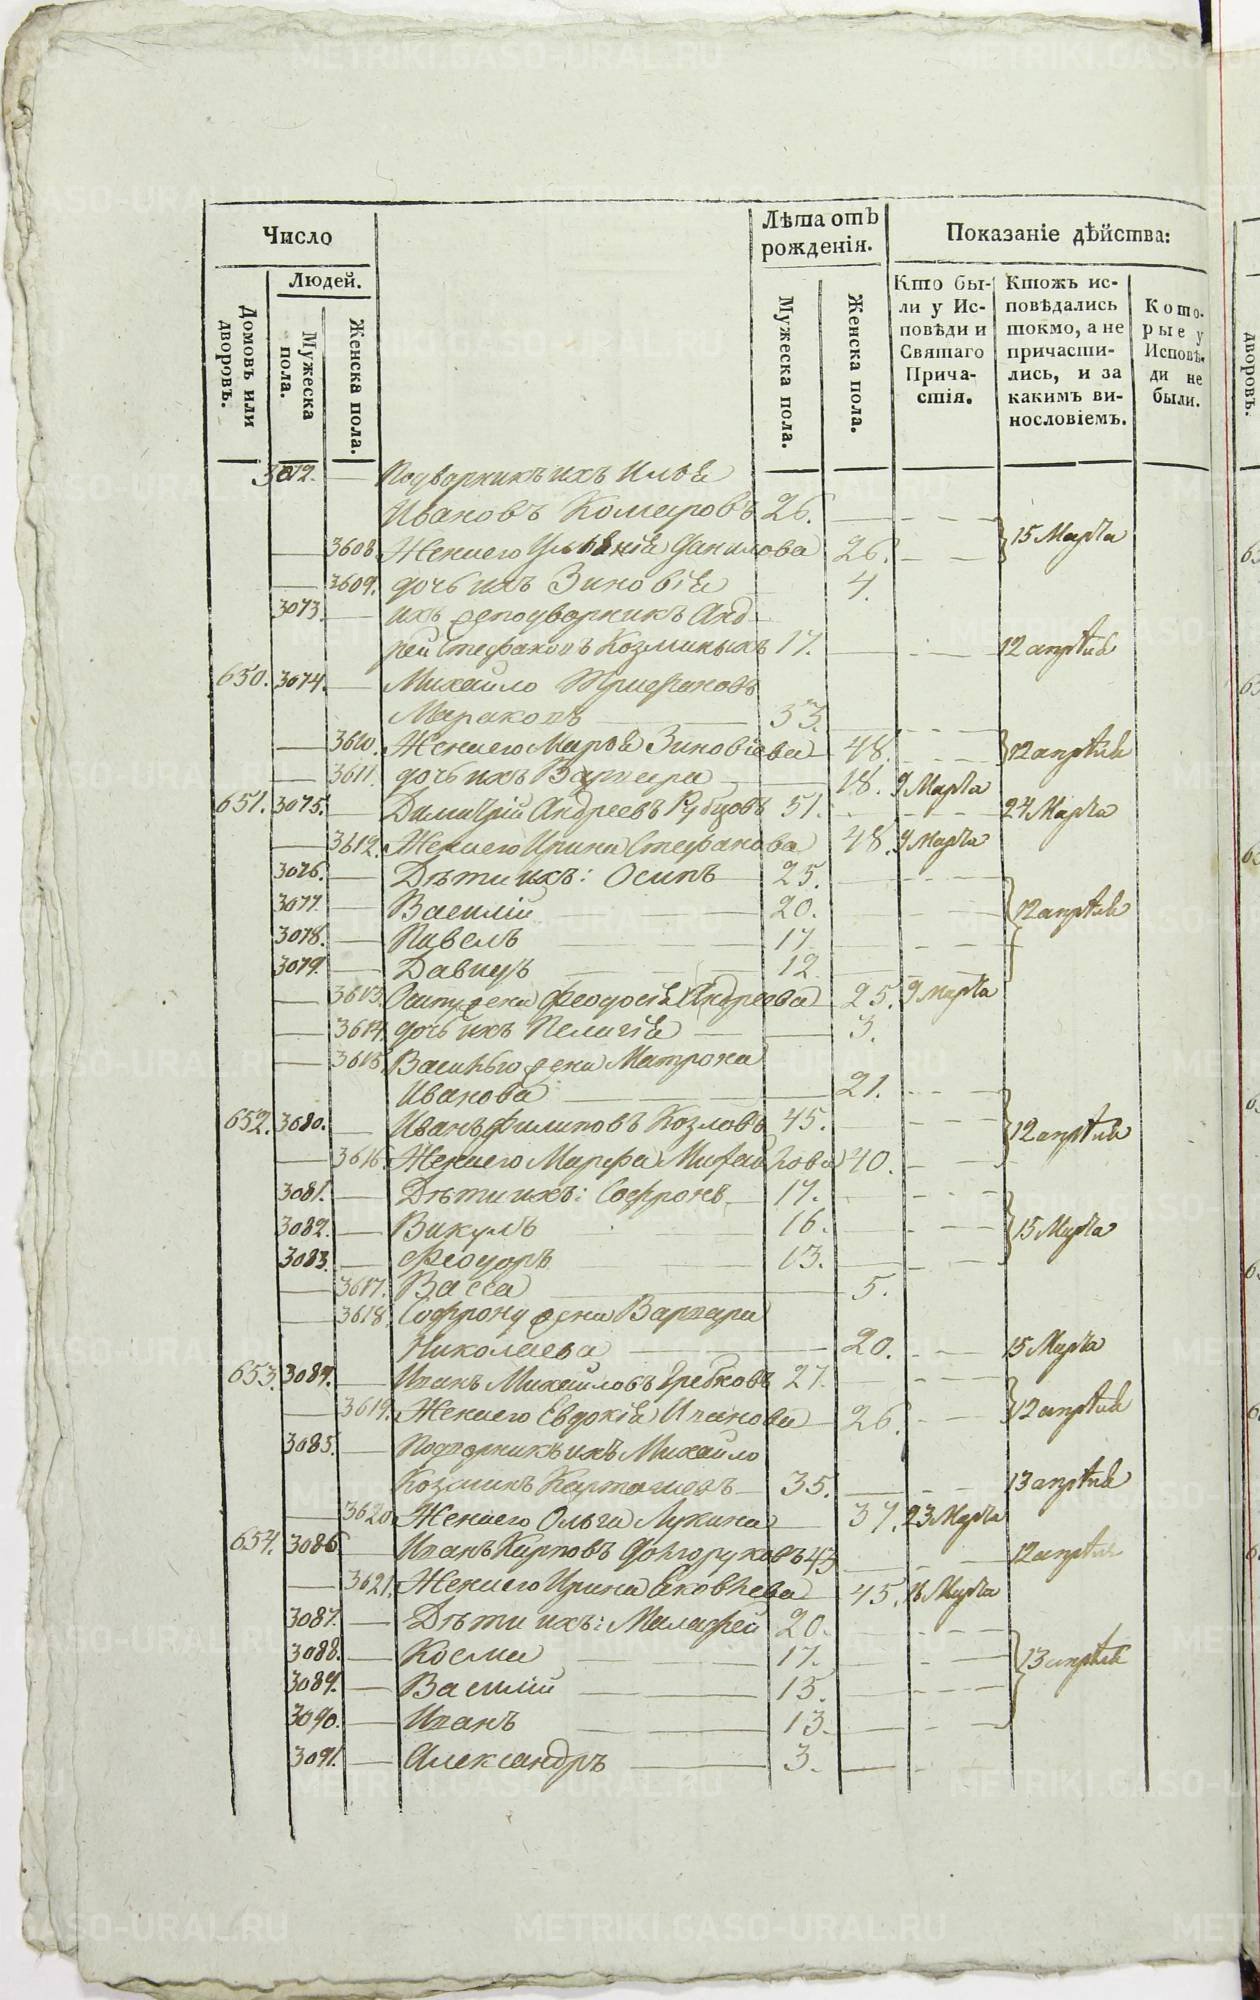 Число
Лѣта отъ рожденія.
Показаніе дѣйства:
Людей.
Домовъ или дворовъ.
Мужеска пола.
Женска пола.
Мужеска пола.
Женска пола.
Кто были у Исповѣди и Святаго Причастія.
Ктожъ исповѣдались токмо, а не причастились, и за какимъ винословіемъ.
Которые у Исповѣди не были.
3072. Подворникъ ихъ Илья
Ивановъ Комаровъ 26.
15 Марта
3608. Жена его Ульянія Данилова 26.
3609. дочь ихъ Зиновія 4.
3073. ихъ же подворникъ Анд
рей Стефановъ Козминыхъ 17. 12 апрѣля
650. 3074. Михайло Трифановъ
Мараковъ 53.
3610. Жена его Марѳа Зиновіева 48. 12 апрѣля
3611. дочь ихъ Варвара 18. 9 Марта
651. 3075. Димитрій Андреевъ Рубцовъ 51. 24 Марта
3612. Жена его Ирина Стефанова 48. 9 Марта
3076. Дѣти ихъ: Осипъ 25.
3077. Василій 20. 12 апрѣля
3078. Павелъ 17
3079. Давидъ 12
3613. Осипу жена Феодосія Андреева 25. 9 Марта
3614. дочь ихъ Пелагія 3.
3615. Васильго жена Матрона
Иванова 21.
652. 3080. Иванъ Филиповъ Козловъ 45. 12 апрѣля
3616. Жена его Марфа Михайлова 40.
3081. Дѣти ихъ: Софронъ 17.
3082. Викулъ 16. 15 Марта
3083. Феодоръ 13.
3617. Васса 5.
3618. Софрону жена Варвара
Николаева 20. 15 Марта
653. 3084. Иванъ Михайловъ Гребковъ 27.
3619. Жена его Евдокія Иванова 26. 12 апрѣля
3085. Подворникъ ихъ Михайло
Козминъ Карташевъ 35. 13 апрѣля
3620. Жена его Ольга Лукина 37. 23 Марта
654. 3086 Иванъ Карповъ Долгоруковъ 43 12 апрѣля
3621. Жена его Ирина Яковлева 45. 16 Марта
3087. Дѣти ихъ: Малафей 20.
3088. Косма 17. 13 апрѣля
3089. Василій 15.
3090. Иванъ 13.
3091. Александръ 3.